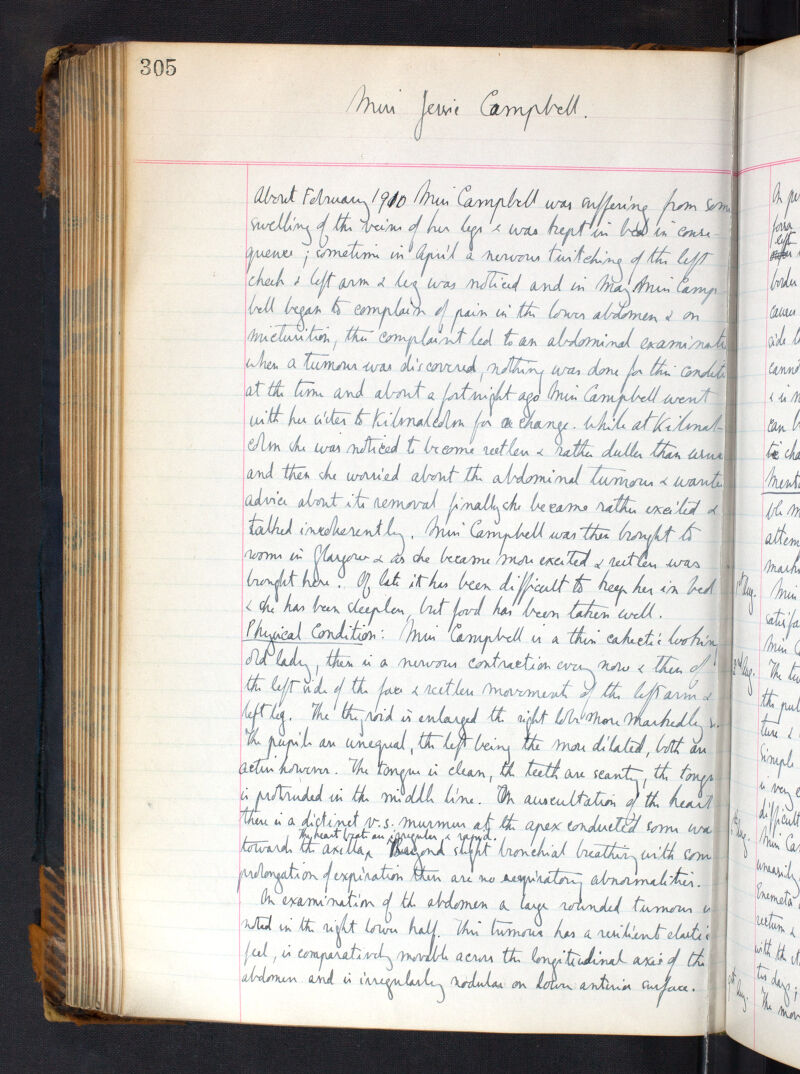 305
Miss Jessie Campbell.
About February 1910 Miss Campbell was suffering from some
swelling of the veins of her legs & was kept in bed in conse-
quence; sometime in April a nervous twitching of the left
cheek & left arm & leg was noticed and in May Miss Camp-
bell began to complain of pain in the lower abdomen & on
micturition, this complaint led to an abdominal examinati
when a tumour was discovered, nothing was done for this conditi
at the time and about a fortnight ago Miss Campbell went
with her sister to Kilmalcolm for a change. While at Kilmal-
colm she was noticed to become restless & rather duller than usua
and then she worried about the abdominal tumour & wante
advice about its removal finally she became rather excited &
talked incoherently. Miss Campbell was then brought to
rooms in Glasgow & as she became more excited & restless was
brought here. Of late it has been difficult to keep her in bed
& she has been sleepless, but food has been taken well.
Physical Condition: Miss Campbell is a thin cahectic looking
old lady, there is a nervous contraction every now & then of
the left side of the face & restless movements of the left arm &
left leg. The thyroid is enlarged the right lobe more markedly so.
The pupils are unequal, the left being the more dilated, both are
active however. The tongue is clean, the teeth are scanty, the tongu
is protruded in the middle line. On auscultation of the heart
there is a distinct v.s. murmur at the apex conducted some wa
The heart beats are irregular & rapid.
towards the axilla, Beyond slight bronchial breathing with some
prolongation of expiration there are no respiratory abnormalities.
On examination of the abdomen a large rounded tumour is
noted in the right lower half. This tumour has a resilient elastic
feel, is comparatively movable across the longitudinal axis of the
abdomen and is irregularly nodular on lower anterior surface.